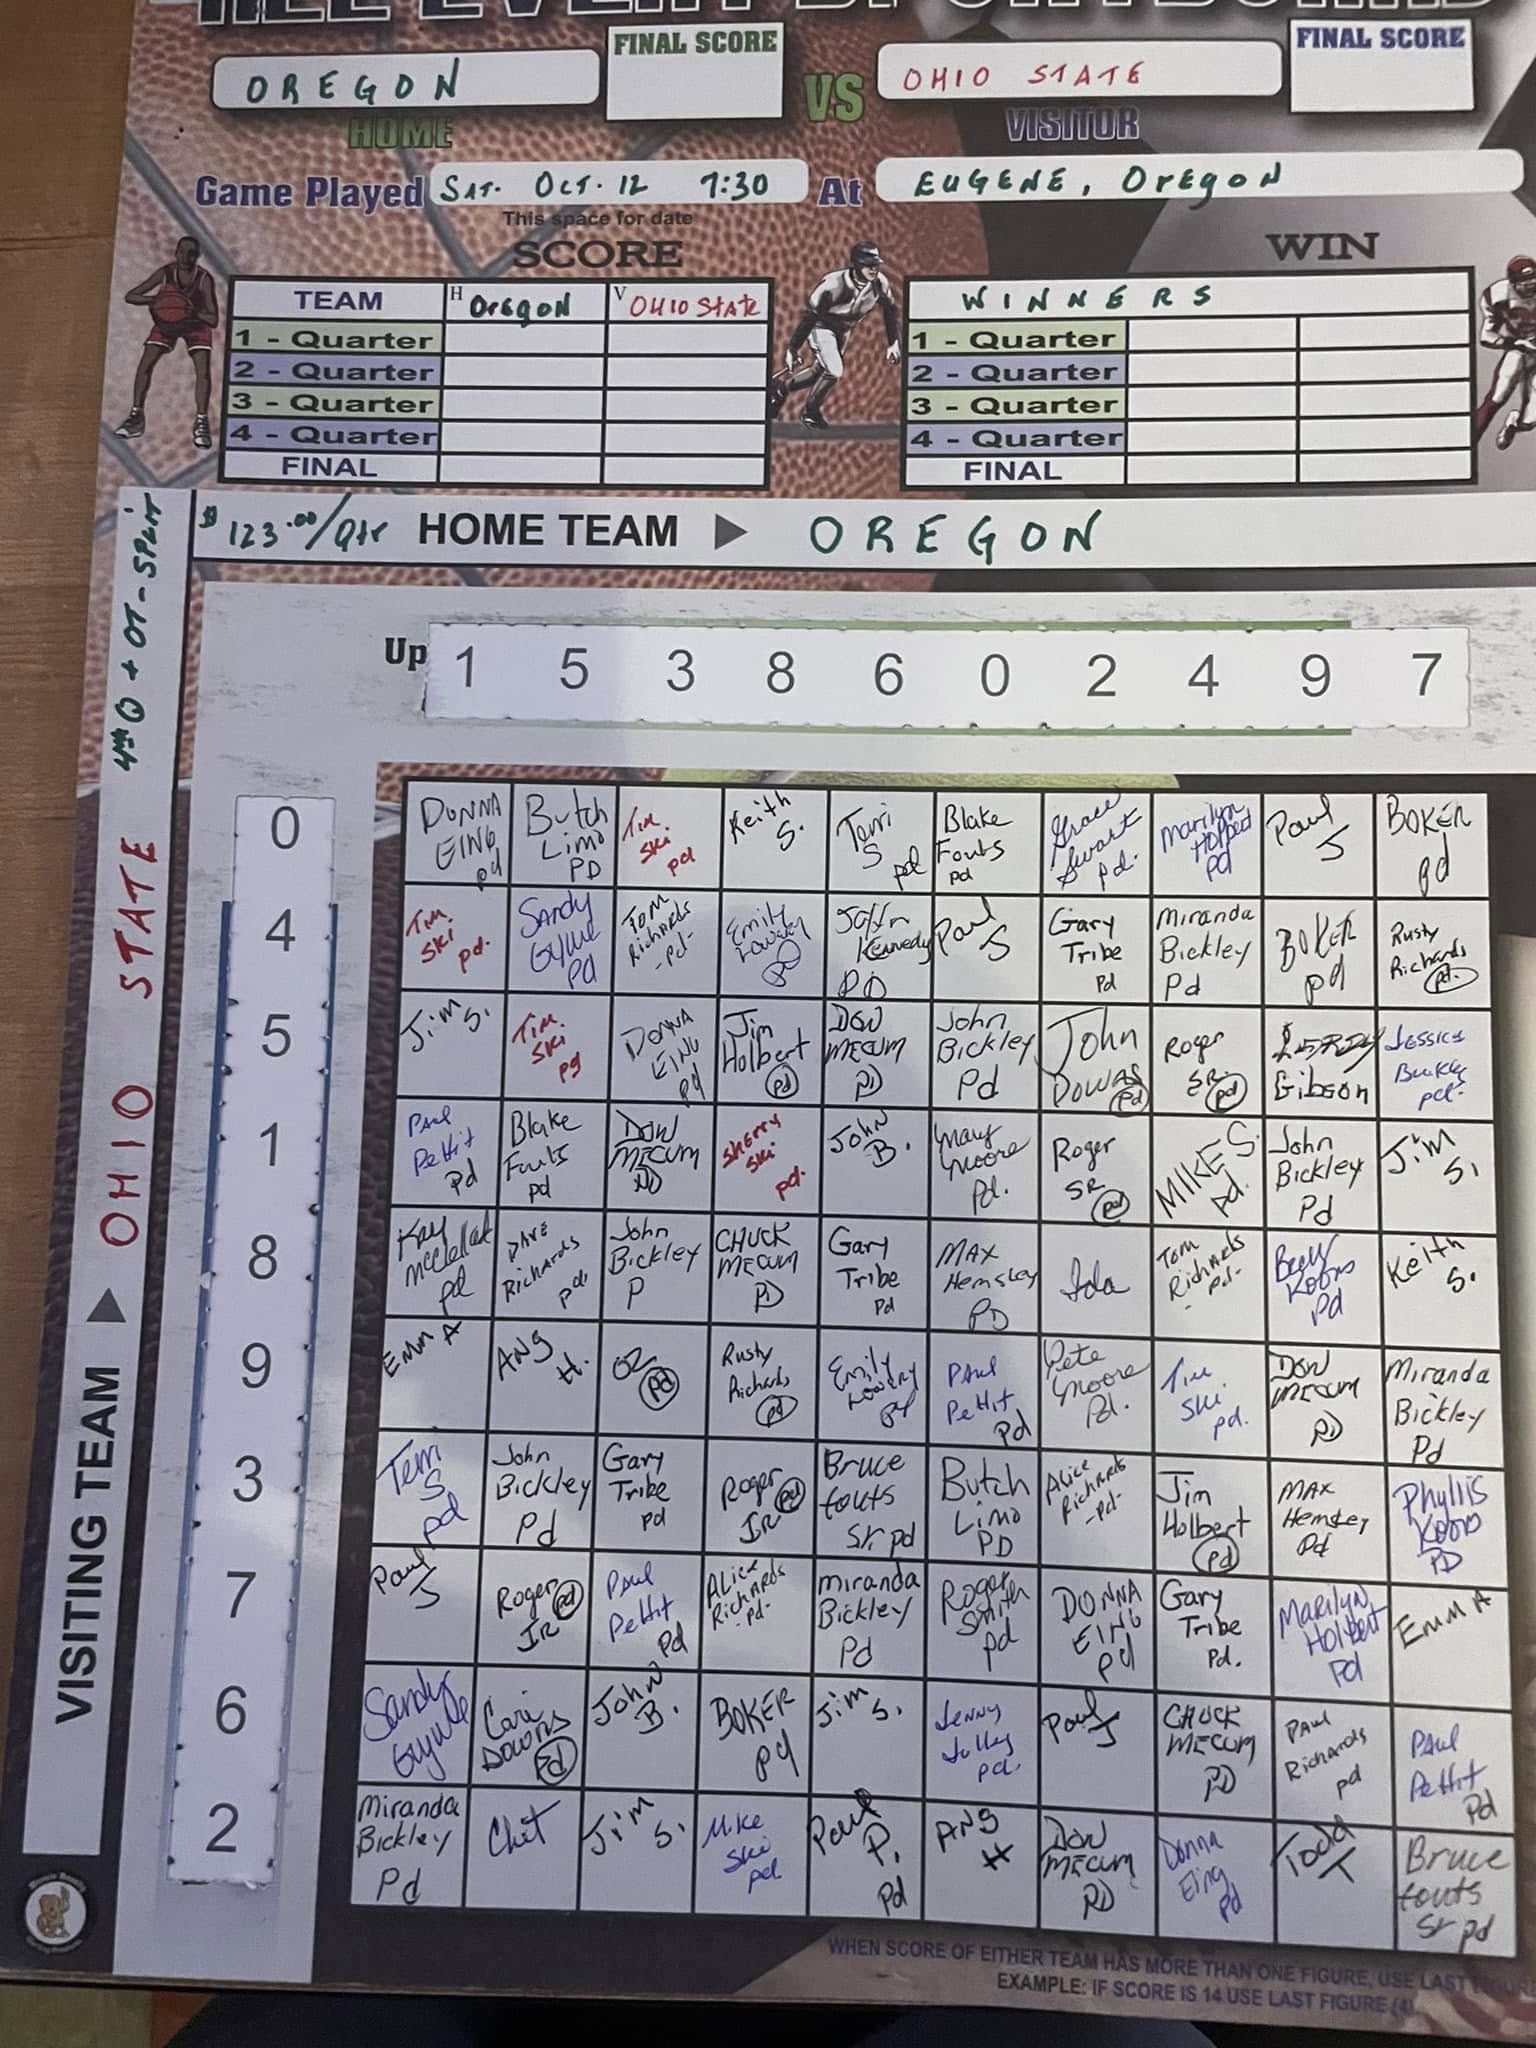 ALL EVENT SPORTBOARD
OREGON
FINAL SCORE
VS
OHIO STATE
FINAL SCORE
HOME
VISITOR
Game Played SAT. OCT. 12 7:30 At EUGENE, OREGON
This space for date
SCORE
WIN
TEAM H OREGON V OHIO STATE
1 - Quarter
2 - Quarter
3 - Quarter
4 - Quarter
FINAL
WINNERS
1 - Quarter
2 - Quarter
3 - Quarter
4 - Quarter
FINAL
$123.00/Qtr HOME TEAM OREGON
4th Q + OT - SPLIT
VISITING TEAM OHIO STATE
Up 1 5 3 8 6 0 2 4 9 7
0
DONNA EING pd
Butch Limo PD
Tim Ski pd
Keith S.
Terri S pd
Blake Fouts pd
Grace Swart pd.
Marilyn Holbert pd
Paul J
BOKER pd
4
Tim Ski pd.
Sandy Pd
Tom Richards -pd-
Emily Lowery PD
John Kennedy PD
Paul J
Gary Tribe Pd
Miranda Bickley Pd
BOKER pd
Rusty Richards pd.
5
Jim S.
Tim Ski pg
DONNA EING pd
Jim Holbert pd
DON MECUM PD
John Bickley Pd
John DOWNS Pd
Roger SR. pd
Gibson
Jessica pd-
1
Paul Pettit Pd
Blake Fouts pd
DON MECUM PD
Sherry Ski pd.
John B.
Mary Moore Pd.
Roger SR pd
MIKE S. pd.
John Bickley Pd
Jim S.
8
Kay McClellan pd
DAVE Richards pd.
John Bickley P
CHUCK MECUM PD
Gary Tribe Pd
MAX Hemsley PD
Ida
Tom Richards -pd-
Koons Pd
Keith S.
9
EMM A
ANG H.
OZ Pd
Rusty Richards pd
Emily Lowery pd
Paul Pettit Pd
Pete Moore Pd.
Tim Ski pd.
DON MECUM PD
Miranda Bickley Pd
3
Terri S pd
John Bickley Pd
Gary Tribe pd
Roger JR pd
Bruce fouts Sr. pd
Butch Limo PD
Alice Richards -pd-
Jim Holbert Pd
MAX Hemsley Pd
Phyllis Koons PD
7
Paul J
Roger JR pd
Paul Pettit Pd
Alice Richards -pd-
Miranda Bickley Pd
Roger Smith pd
DONNA EING pd
Gary Tribe Pd.
Marilyn Holbert Pd
EMM A
6
Sandy
Cari Downs Pd
John B.
BOKER pd
Jim S.
Jenny pd.
Paul J
CHUCK MECUM PD
PAUL Richards pd
Paul Pettit Pd
2
Miranda Bickley Pd
Chet
Jim S.
Mike Ski pd
Paul P. Pd
ANG H
DON MECUM PD
Donna Eing Pd
Todd T
Bruce fouts Sr pd
WHEN SCORE OF EITHER TEAM HAS MORE THAN ONE FIGURE, USE LAST FIGURE
EXAMPLE: IF SCORE IS 14 USE LAST FIGURE (4)